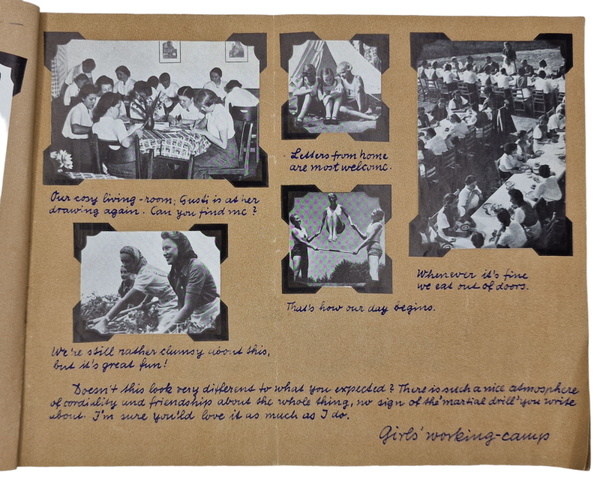 Our cosy living-room; Gusti is at her
drawing again. Can you find me?
Letters from home
are most welcome.
Whenever it's fine
we eat out of doors.
That's how our day begins.
We're still rather clumsy about this,
but it's great fun!
Doesn't this look very different to what you expected? There is such a nice atmosphere
of cordiality and friendship about the whole thing, no sign of the "martial drill" you write
about. I'm sure you'ld love it as much as I do.
Girls' working-camp